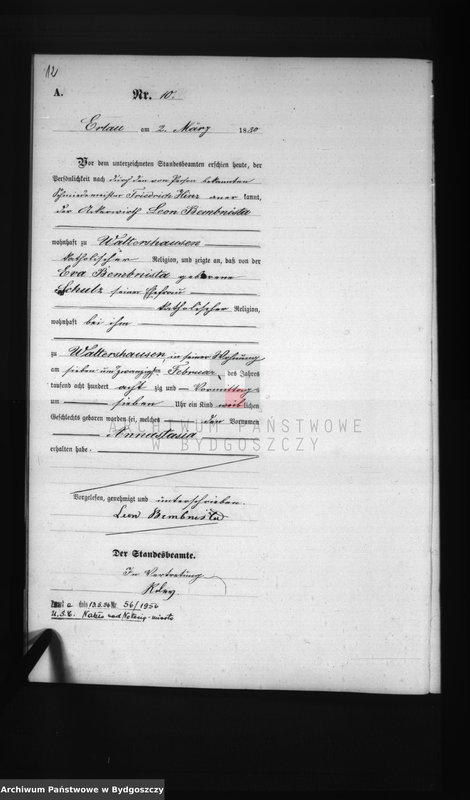 12
A.
Nr. 10.
Erlau am 2. März 1880
Vor dem unterzeichneten Standesbeamten erschien heute, der
Persönlichkeit nach durch den von Person bekannten
Schmiedemeister Friedrich Hinz anerkannt,
der Ackerwirth Leon Bembnista
wohnhaft zu Waltershausen
katholischer Religion, und zeigte an, daß von der
Eva Bembnista geborene
Schulz seiner Ehefrau
katholischer Religion,
wohnhaft bei ihm
zu Waltershausen, in seiner Wohnung
am sieben und zwanzigsten Februar des Jahres
tausend acht hundert achtzig und Vormittags
um sieben Uhr ein Kind weiblichen
Geschlechts geboren worden sei, welches den Vornamen
Annastasia
erhalten habe.
Vorgelesen, genehmigt und unterschrieben.
Leon Bembnista
Der Standesbeamte.
In Vertretung
a dnia 13.3.56 Nr. 56/1956
U.S.C. Nakło nad Notecią - miasto
ARCHIWUM PAŃSTWOWE
W BYDGOSZCZY
Archiwum Państwowe w Bydgoszczy